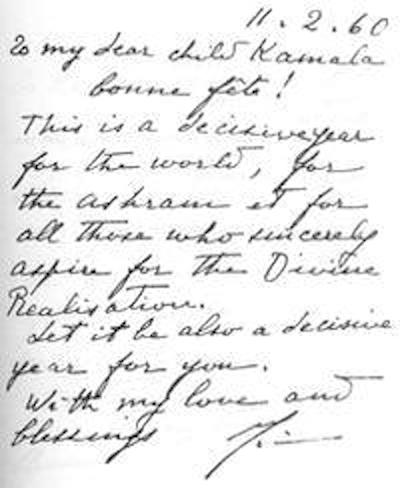 11.2.60
To my dear child Kamala
bonne fête!
This is a decisive year
for the world, for
the ashram et for
all those who sincerely
aspire for the Divine
Realisation.
Let it be also a decisive
year for you.
With my love and
blessings